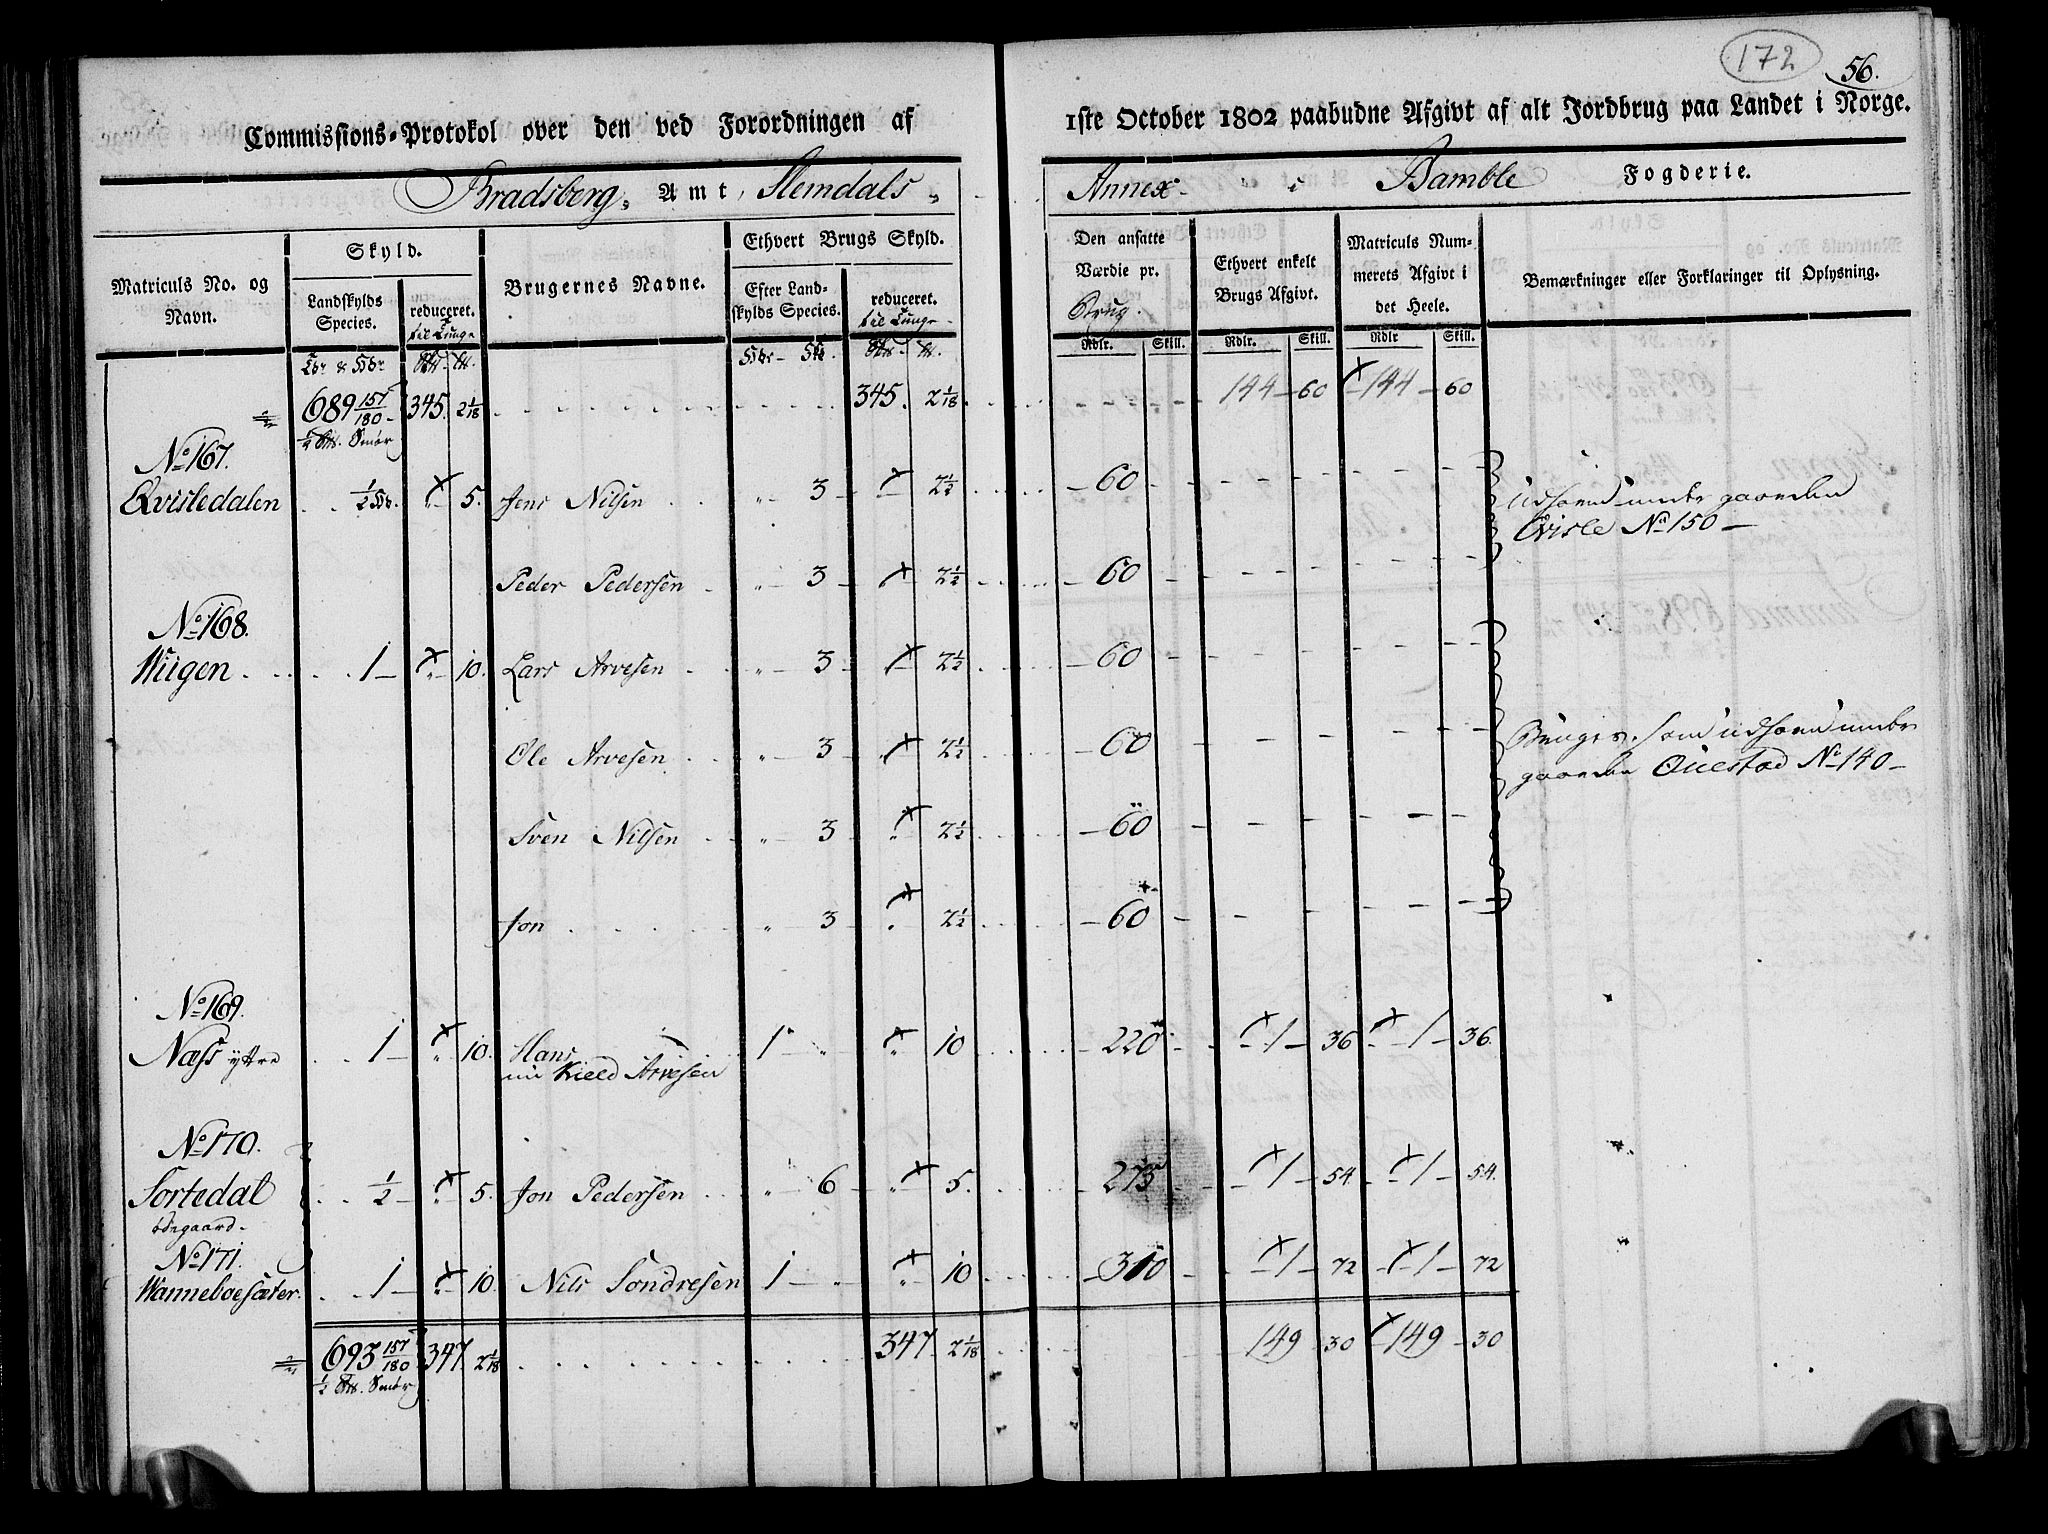 172
56.
Commissions-Protokol over den ved Forordningen af 1ste October 1802 paabudne Afgivt af alt Jordbrug paa Landet i Norge.
Bradsberg, Amt, Slemdals, Annex i Bamble Fogderie.
Matriculs No. og Navn.
Skyld.
Landskylds Species.
reduceret. til Tunge
Brugernes Navne.
Ethvert Brugs Skyld.
Efter Landskylds Species.
reduceret. til Tunge
Den ansatte Værdie pr. Brug.
Ethvert enkelt Brugs Afgivt.
Matriculs Nummerets Afgivt i det Heele.
Bemærkninger eller Forklaringer til Oplysning.
Rdlr. Skill. Rdlr. Skill. Rdlr Skill.
689 157/180 345. 2 1/18 345. 2 1/18 144 60 144 60
1/2 Smør
No 167.
Qvisledalen 1/2 5. Jens Nilsen 3 2 1/2 60 Udhavn under gaarden
Qvisle No 150
Peder Pedersen 3 2 1/2 60
No 168.
Wiigen 1 10. Lars Arvesen 3 2 1/2 60
Ole Arvesen 3 2 1/2 60 Bruges som udhavn under
gaarden No 140
Sven Nilsen 3 2 1/2 60
Jon 3 2 1/2 60
No 169.
Næss ytre 1 10. Hans 1 10 220 1 36 1 36.
nu Kield Arvesen
No 170.
Sortedal 1/2 5. Jon Pedersen 6 5. 275 1 54. 1 54.
ödegaard
No 171.
Wanneboesæter. 1 10. Nils Sondresen 1 10 310 1 72 1 72
693 157/180 347 2 1/18 347 2 1/18 149 30 149 30
1/2 Smør